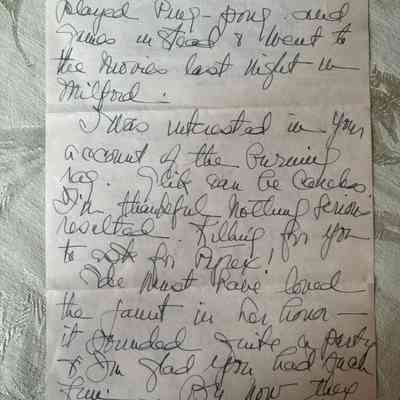 played Ping-Pong and
games instead & went to
the movies last night in
Milford.
I was interested in your
account of the burning
rag. can be careless.
I'm thankful nothing serious
resulted. Killing for you
to ask for Pyrex!
must have loved
the in her honor —
it sounded quite a party
& I'm glad you had such
fun. By now they